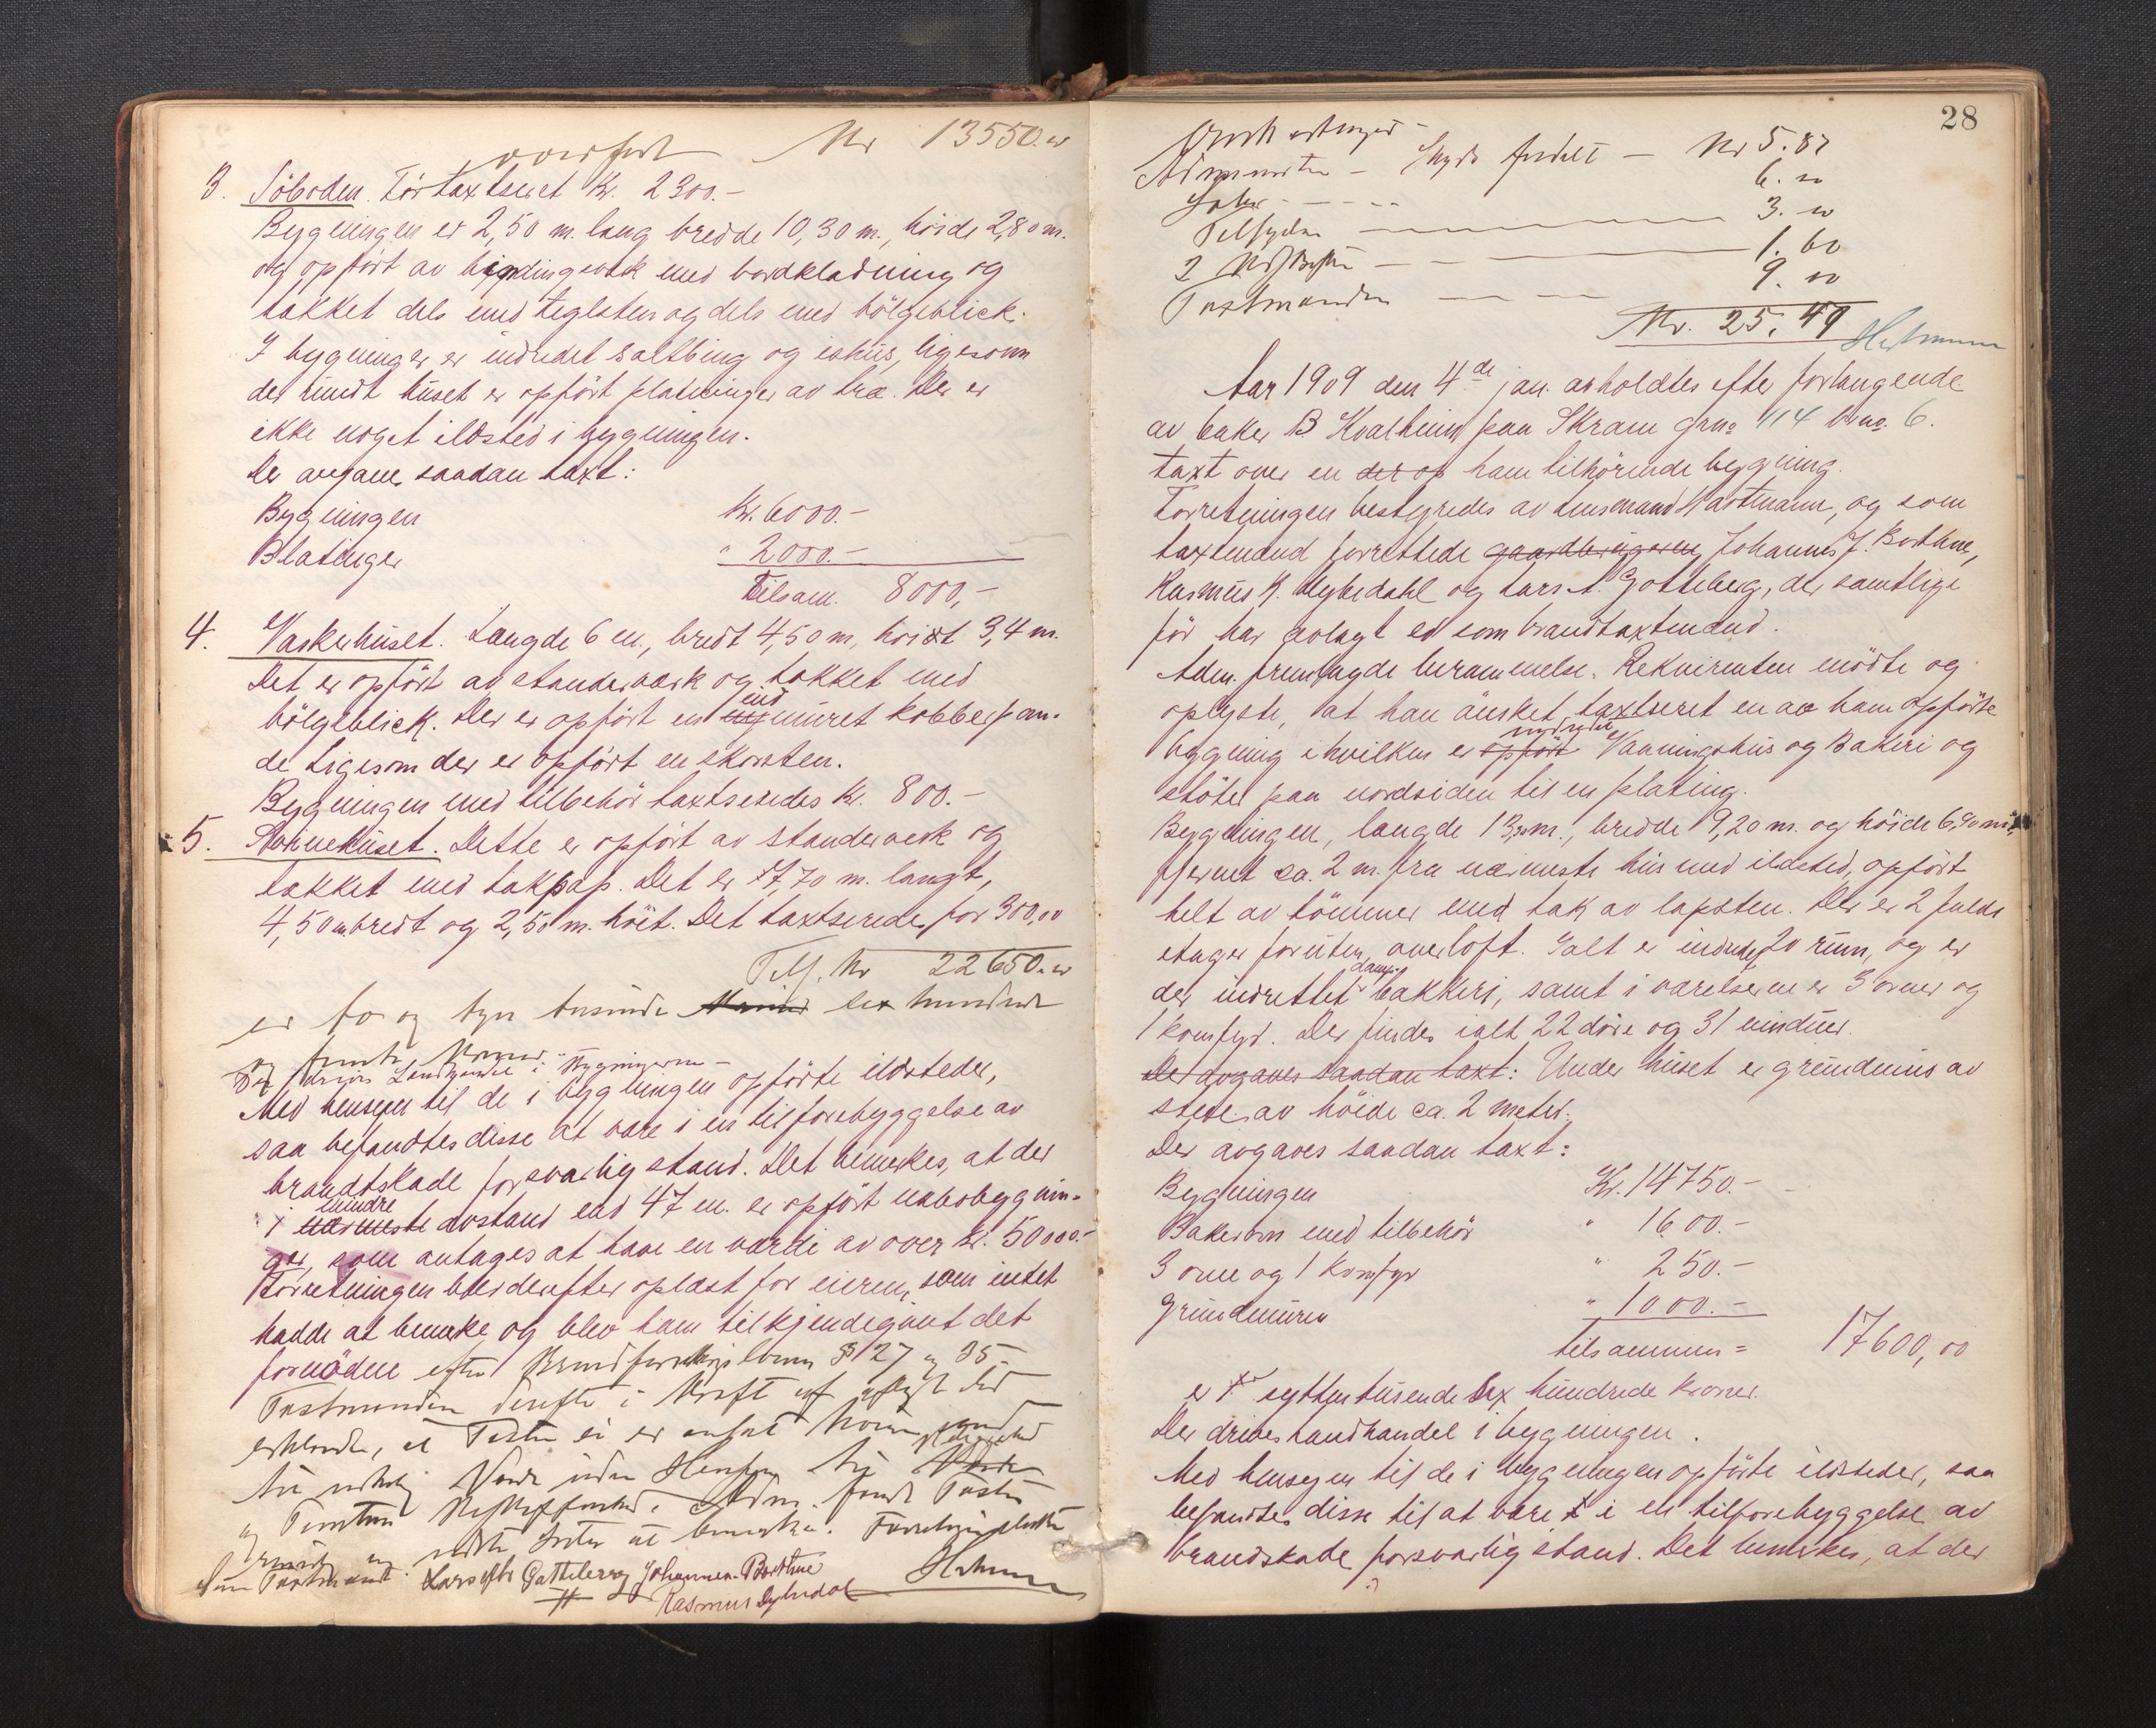 overført Kr 13550.00
3. Söboden. Før taxtseret Kr. 2300.-
Bygningen er 2,50 m. lang bredde 10,30 m., höide 2,80 m.
og opfört av bindingsverk med bordklædning og
takket dels med teglsten og dels med bölgeblick.
I bygningen er indredet saltbing og ishus, ligesom
der rundt huset er opfört platninger av træ. Der er
ikke noget ildsted i bygningen.
Der avgaves saadan taxt:
Bygningen Kr. 6000.-
Platinger " 2000.-
Tilsam. 8000,-
4. Vaskerhuset. Længde 6 m., bredt 4,50 m, höidt 3,4 m.
Det er opfört av standerværk og takket med
bölgeblick. Der er opfört en indmuret kobberpan-
de ligesom der er opfört en skorsten.
Bygningen med tilbehör taxtseredes Kr. 800.-
5. Svinehuset. Dette er opfört av standerverk og
takket med takpap. Det er 7,70 m. langt,
4,50 m. bredt og 2,50 m. höit. Det taxtseredes for 300,00
Tils. Kr 22650.00
er to og tyve tusinde sex hundrede
og femti Kroner.
Der drives Landhandel i Bygningerne -
Med hensyn til de i bygningen opförte ildsteder,
saa befandtes disse at være i en til forebyggelse av
brandtskade forsvarlig stand. Det bemerkes, at der
i mindre avstand end 47 m. er opfört nabobygnin-
ger, som antages at have en værdi av over kr. 50000.-
Forretningen blev derefter oplæst for eieren, som intet
hadde at bemerke og blev ham tilkjendegivet det
fornödne efter Brandforsikringsloven § 27 og 35.
Taxtmændene derefter i Kraft af aflagt Ed
erklærede, at Taxten ei er ansat höiere end
den virkelige Værdi uden Hensyn til
og Tomtens Beskaffenhed. Adm. fandt Taxten
og intet at bemerke. Forretningen sluttet
som Taxtmænd: Lars Gotteberg Johannes Borthne Hartmann
Rasmus Dybedal
28
Skyds fordelt - Kr 5.87
Administr. - 6.00
3.00
1.60
Taxtmændene 9.00
Kr. 25.47 Hartmann
Aar 1909 den 4de jan. avholdtes efter forlangende
av baker B Hvalheim paa Skram gno 114 brno. 6.
taxt over en det op ham tilhörende bygning.
Forretningen bestyredes av lensmand Hartmann, og som
taxtmænd forrettede gaardbrugerne Johannes J. Borthne,
Rasmus K. Dybedahl og Lars A. Gotteberg, der samtlige
för har avlagt ed som brandtaxtmænd.
Adm. fremlagde berammelse. Rekvirenten mödte og
oplyste, at han önsket taxtseret en av ham opförte
bygning i hvilken er opfört indredet Vaaningshus og Bakeri og
stöter paa nordsiden til en plating.
Bygningen, længde 13,70 m., bredde 9,20 m. og höide 6,90 m
fjernet ca. 2 m. fra nærmeste hus med ildsted, opfört
helt av tömmer med tak av lapsten. Der er 2 fulde
etager foruten overloft. Ialt er indredet 20 rum, og er
der indrettet damp- bakkeri, samt i værelserne er 3 ovner og
1 komfyr. Der findes ialt 22 döre og 31 vinduer.
Der avgaves saadan taxt: Under huset er grundmur av
sten av höide ca. 2 meter.
Der avgaves saadan taxt:
Bygningen Kr. 14750.-
Bakerovn med tilbehör " 1600.-
3 ovne og 1 komfyr " 250.-
Grundmuren " 1000.-
tilsammen = 17600,00
er sytten tusende sex hundrede kroner.
Der drives landhandel i bygningen.
Med hensyn til de i bygningen opförte ildsteder, saa
befandtes disse til at være i en til forebyggelse av
brandskade forsvarlig stand. Det bemerkes, at der